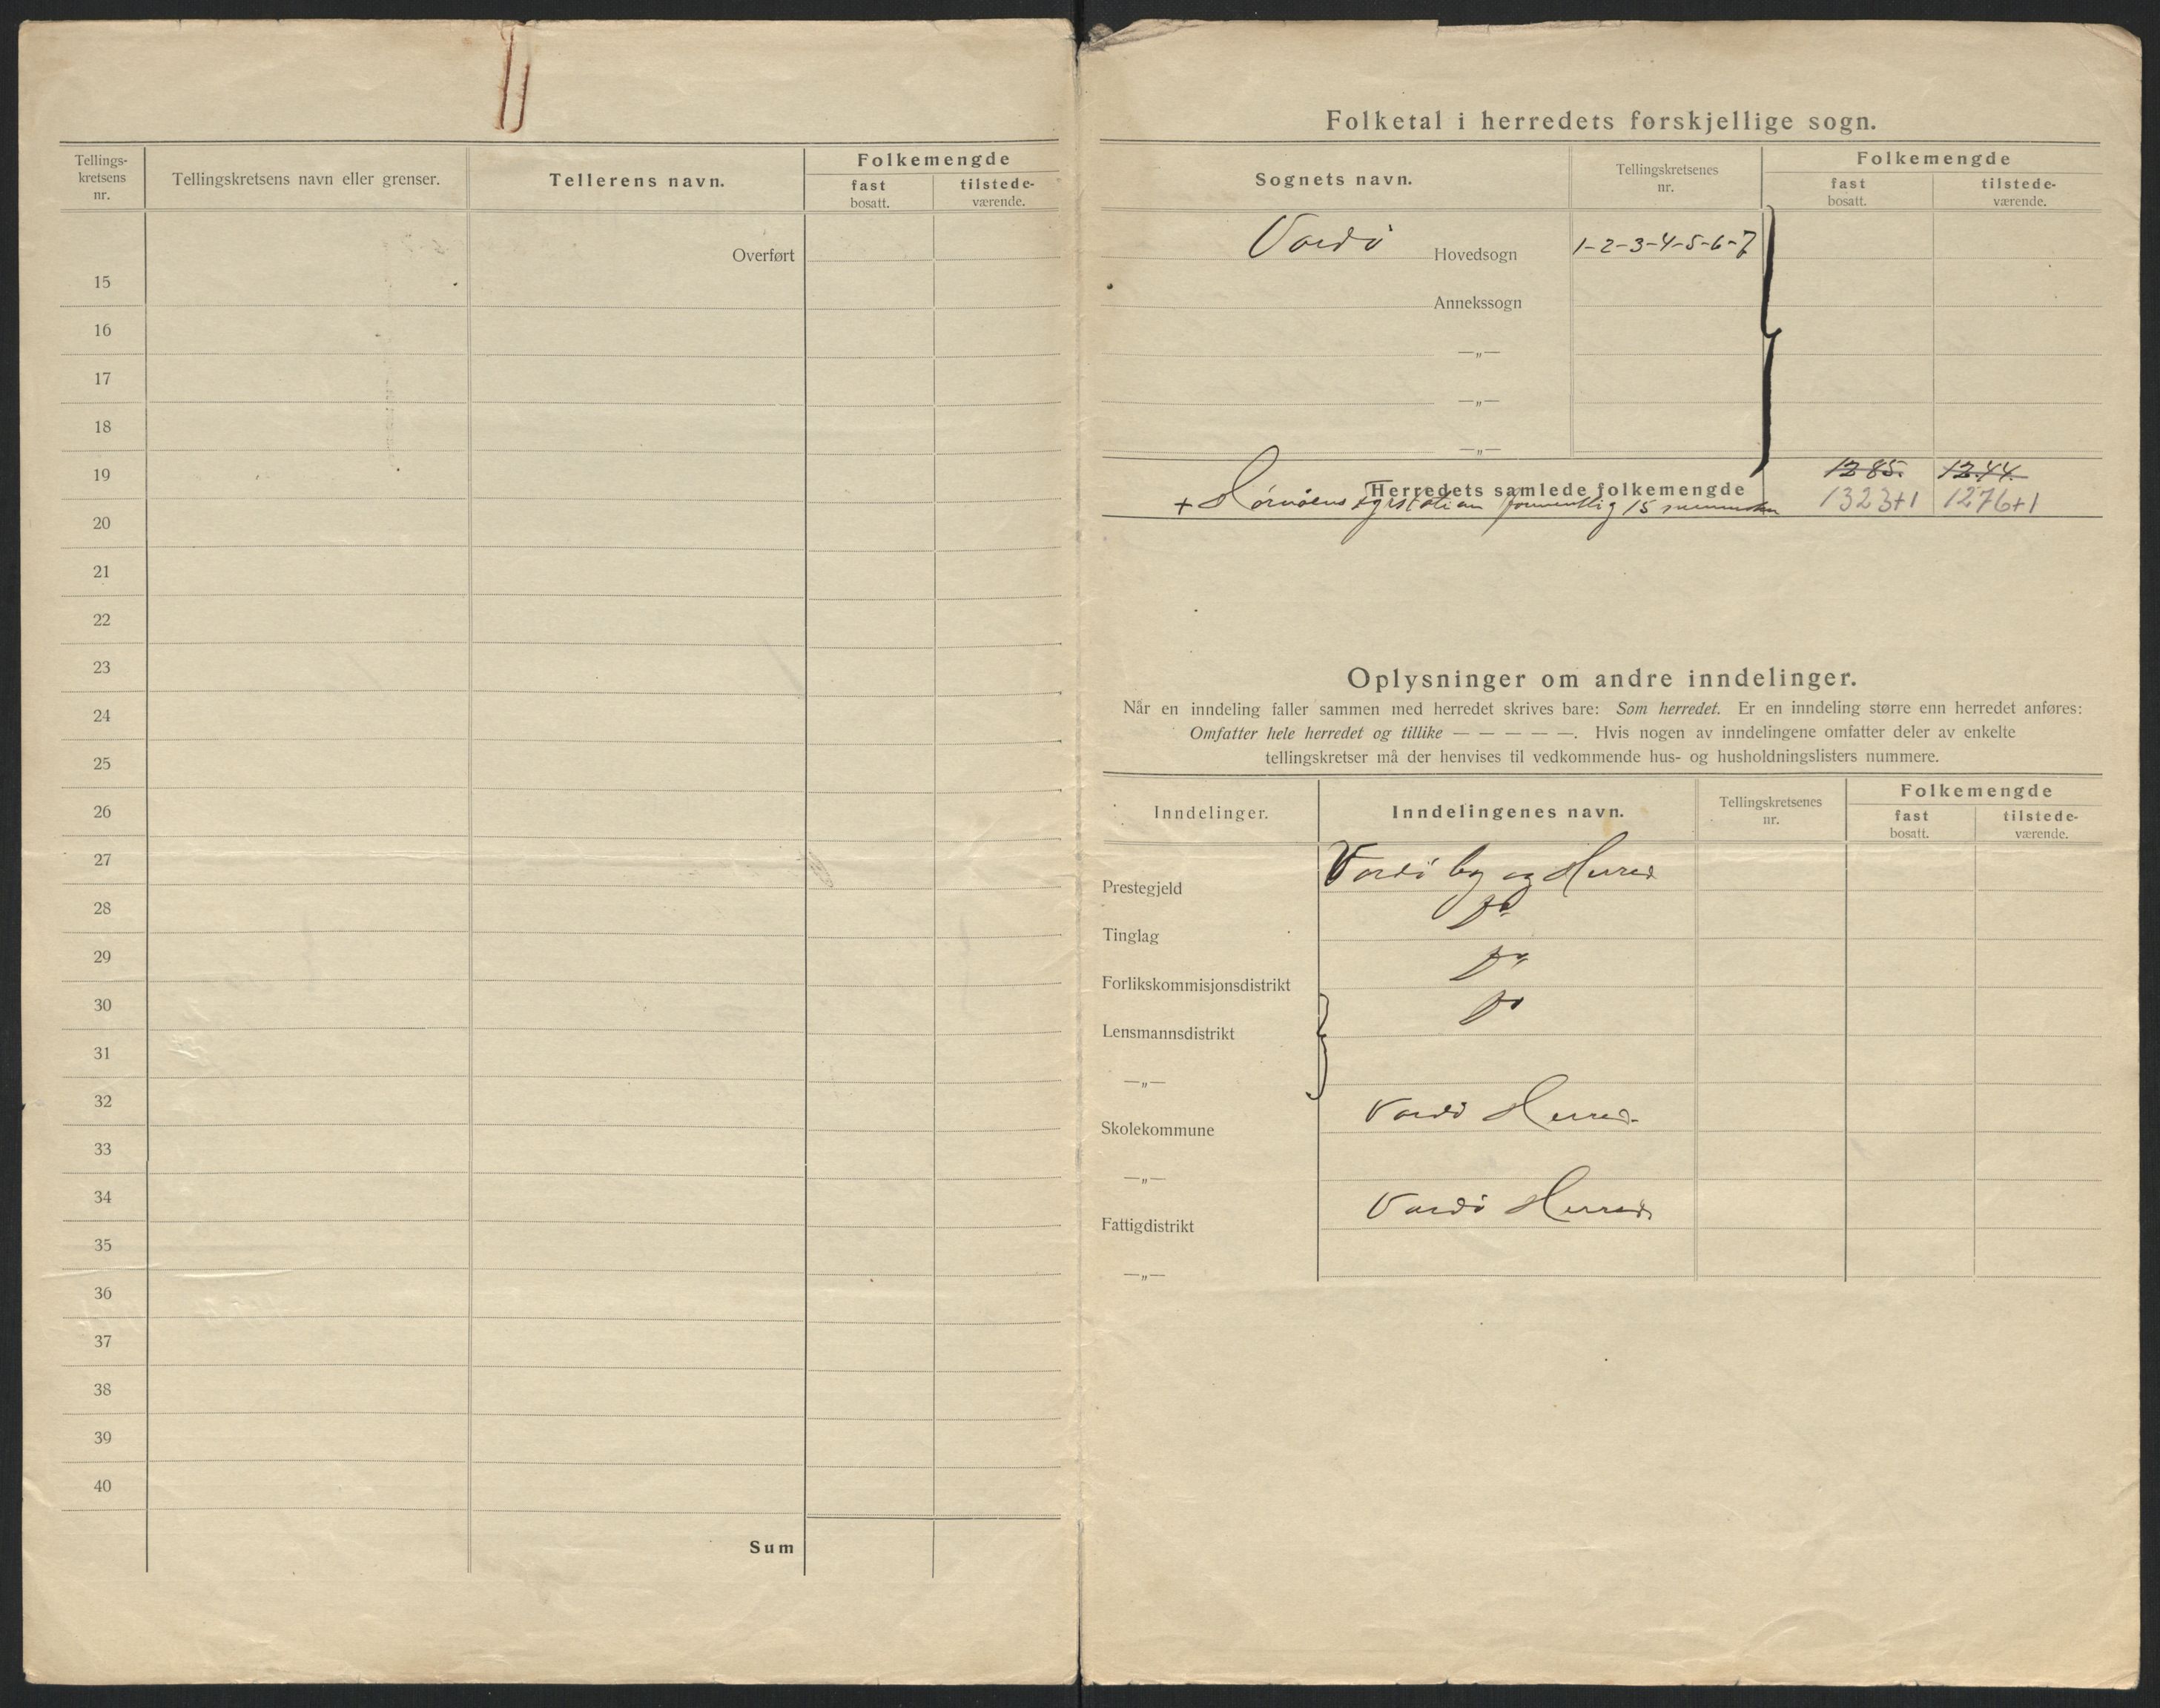 Tellings-
kretsens
nr.
Tellingskretsens navn eller grenser.
Tellerens navn.
Folkemengde
fast
bosatt.
tilstede-
værende.
Overført
15
16
17
18
19
20
21
22
23
24
25
26
27
28
29
30
31
32
33
34
35
36
37
38
39
40
Sum
Folketal i herredets førskjellige sogn.
Sognets navn.
Tellingskretsenes
nr.
Folkemengde
fast
bosatt.
tilstede-
værende.
Vardö Hovedsogn 1-2-3-4-5-6-7
Annekssogn
—„—
—„—
—„—
1285. 1244.
Herredets samlede folkemengde 1323+1 1276+1
+ Hornöens Fyrstation formentlig 15 mennesker
Oplysninger om andre inndelinger.
Når en inndeling faller sammen med herredet skrives bare: Som herredet. Er en inndeling større enn herredet anføres:
Omfatter hele herredet og tillike — — — — —. Hvis nogen av inndelingene omfatter deler av enkelte
tellingskretser må der henvises til vedkommende hus- og husholdningslisters nummere.
Inndelinger.
Inndelingenes navn.
Tellingskretsenes
nr.
Folkemengde
fast
bosatt.
tilstede-
værende.
Prestegjeld Vardö by og Herred
Tinglag
Forlikskommisjonsdistrikt
Lensmannsdistrikt
—„—
Skolekommune Vardö Herred.
—„—
Fattigdistrikt Vardö Herred.
—„—